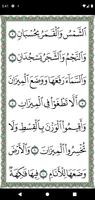 5:41
ٱلشَّمْسُ وَٱلْقَمَرُ بِحُسْبَانٍ ۝
وَٱلنَّجْمُ وَٱلشَّجَرُ يَسْجُدَانِ ۝
وَٱلسَّمَآءَ رَفَعَهَا وَوَضَعَ ٱلْمِيزَانَ
۝ أَلَّا تَطْغَوْا۟ فِى ٱلْمِيزَانِ ۝
وَأَقِيمُوا۟ ٱلْوَزْنَ بِٱلْقِسْطِ وَلَا
تُخْسِرُوا۟ ٱلْمِيزَانَ ۝ وَٱلْأَرْضَ
وَضَعَهَا لِلْأَنَامِ ۝ فِيهَا فَـٰكِهَةٌ